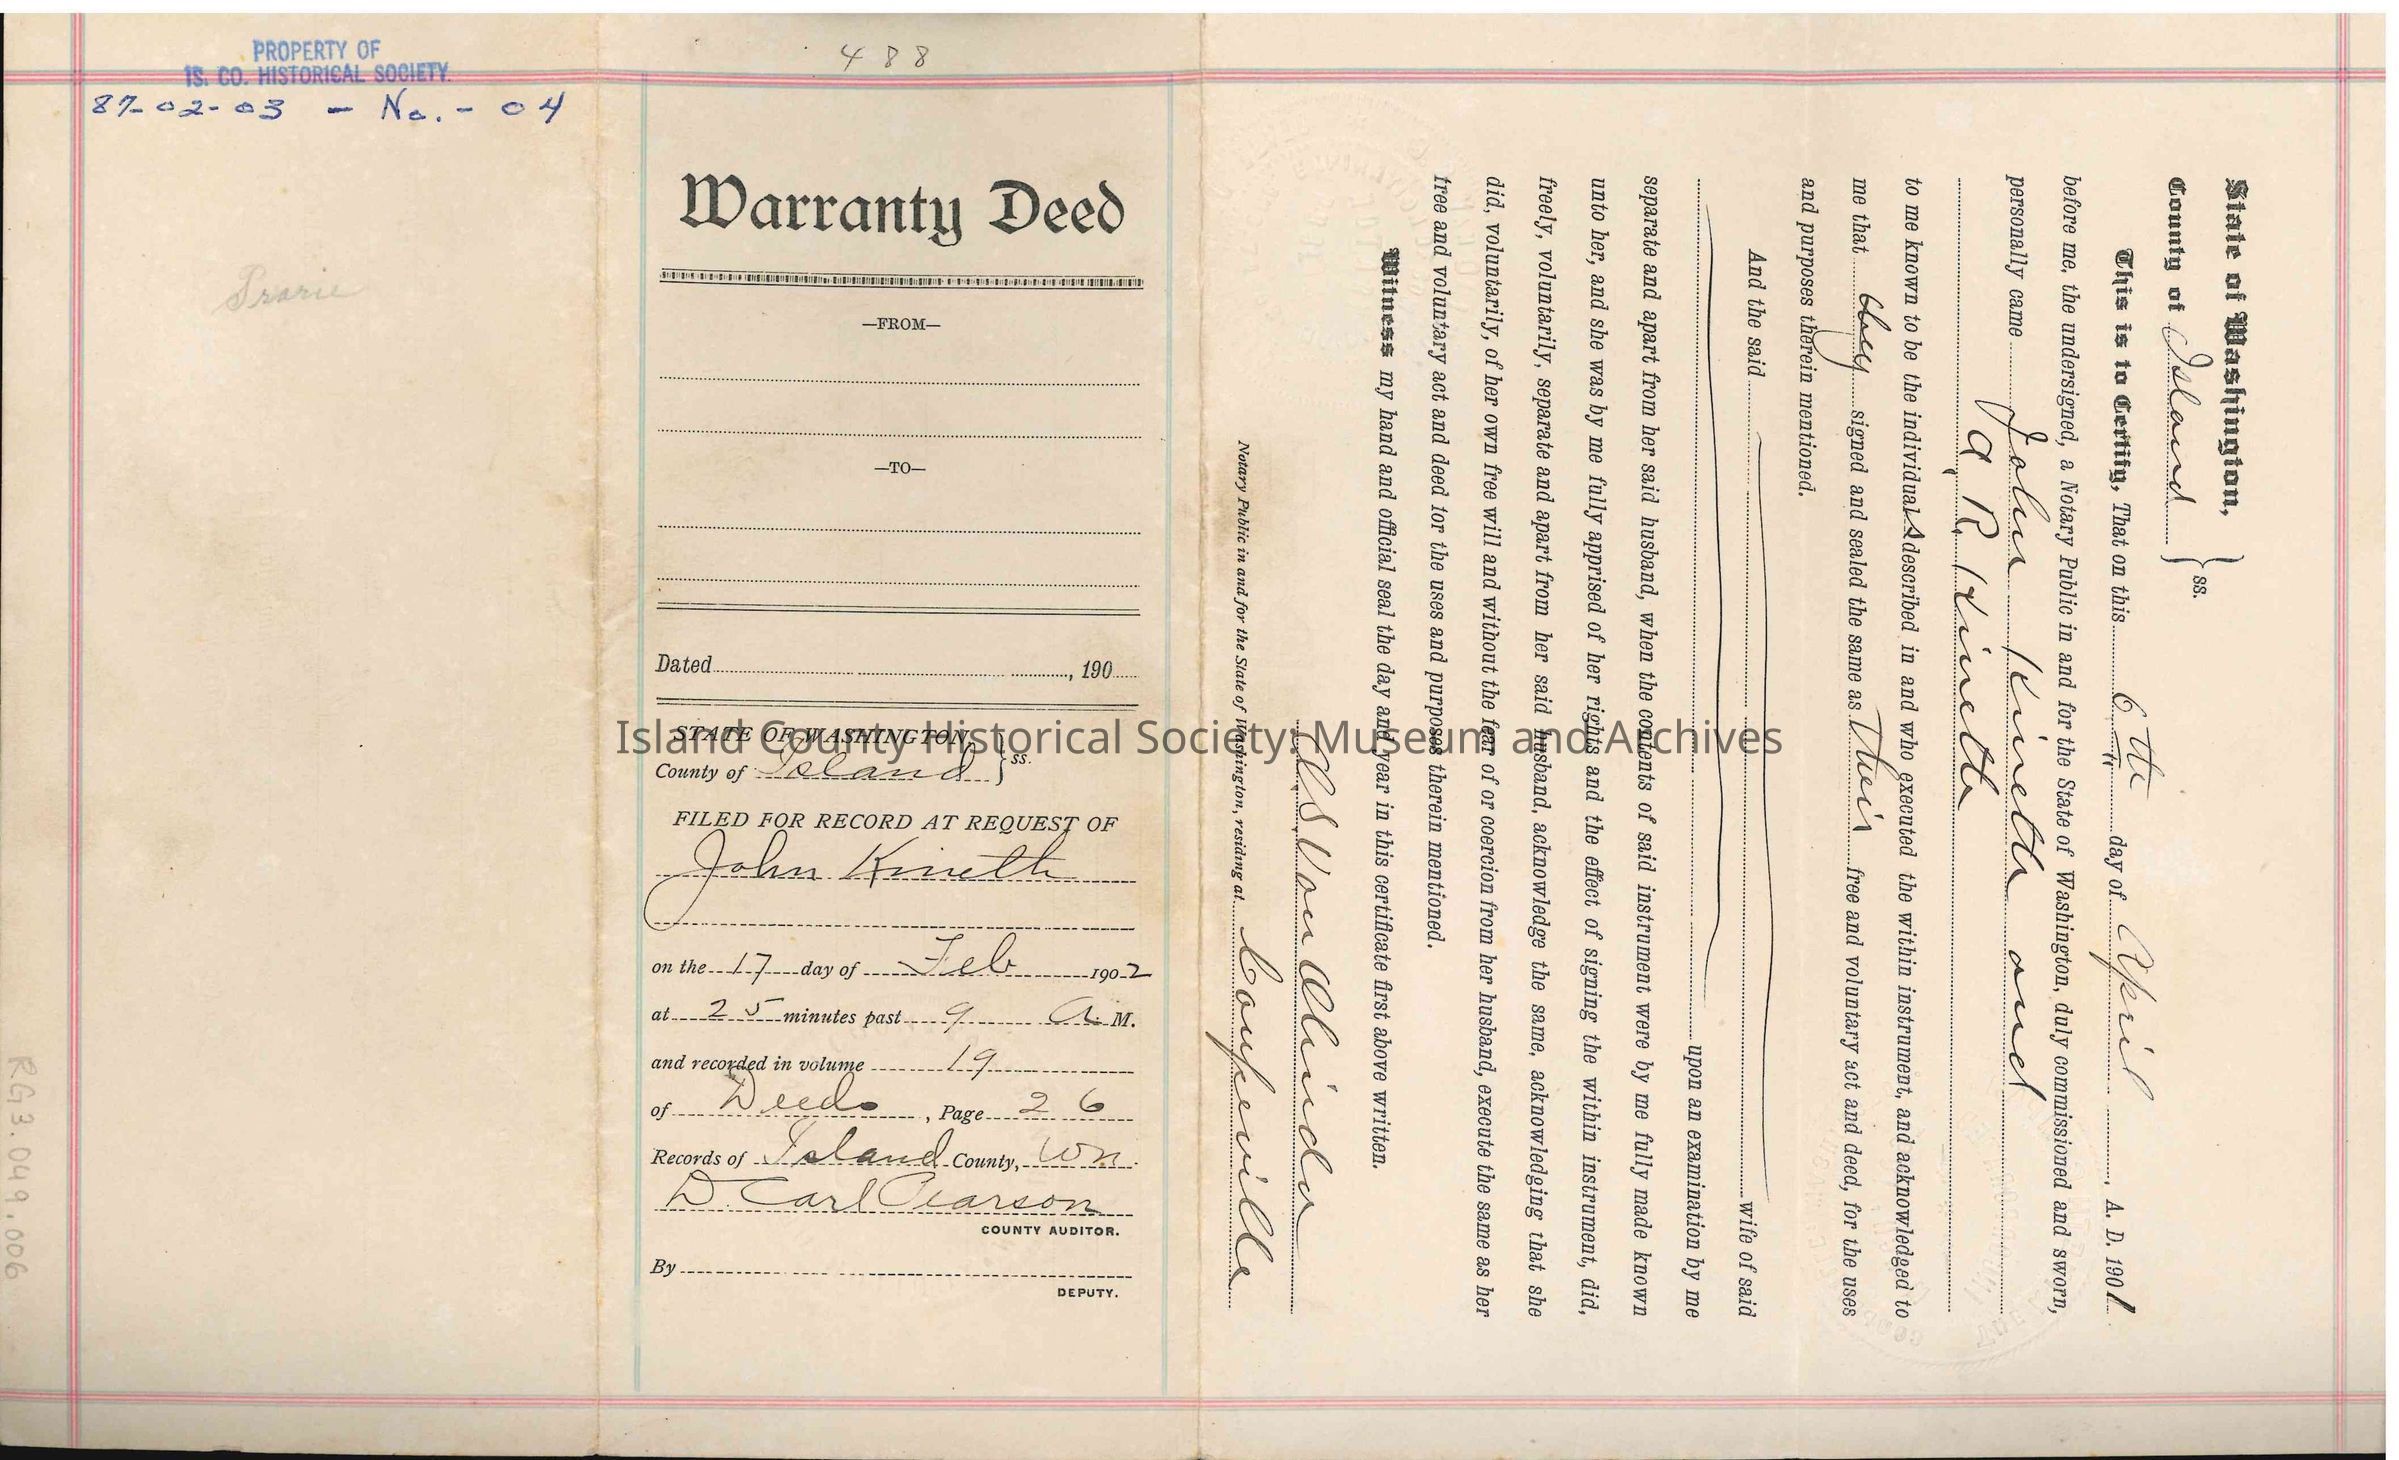 PROPERTY OF
IS. CO. HISTORICAL SOCIETY
87-02-03 - No. - 04
Prarie
RG3.049.006
488
Warranty Deed
—FROM—
—TO—
Dated , 190
STATE OF WASHINGTON, } ss.
County of Island
FILED FOR RECORD AT REQUEST OF
John Kineth
on the 17 day of Feb 1902
at 25 minutes past 9 A. M.
and recorded in volume 19
of Deeds , Page 26
Records of Island County, Wn.
D. Carl Pearson
COUNTY AUDITOR.
By
DEPUTY.
Island County Historical Society: Museum and Archives
State of Washington, } ss.
County of Island
This is to Certify, That on this 6th day of April , A. D. 1901
before me, the undersigned, a Notary Public in and for the State of Washington, duly commissioned and sworn,
personally came John Kineth and
J R Kineth
to me known to be the individual s described in and who executed the within instrument, and acknowledged to
me that they signed and sealed the same as their free and voluntary act and deed, for the uses
and purposes therein mentioned.
And the said wife of said
upon an examination by me
separate and apart from her said husband, when the contents of said instrument were by me fully made known
unto her, and she was by me fully apprised of her rights and the effect of signing the within instrument, did,
freely, voluntarily, separate and apart from her said husband, acknowledge the same, acknowledging that she
did, voluntarily, of her own free will and without the fear of or coercion from her husband, execute the same as her
free and voluntary act and deed for the uses and purposes therein mentioned.
Witness my hand and official seal the day and year in this certificate first above written.
Notary Public in and for the State of Washington, residing at Coupeville